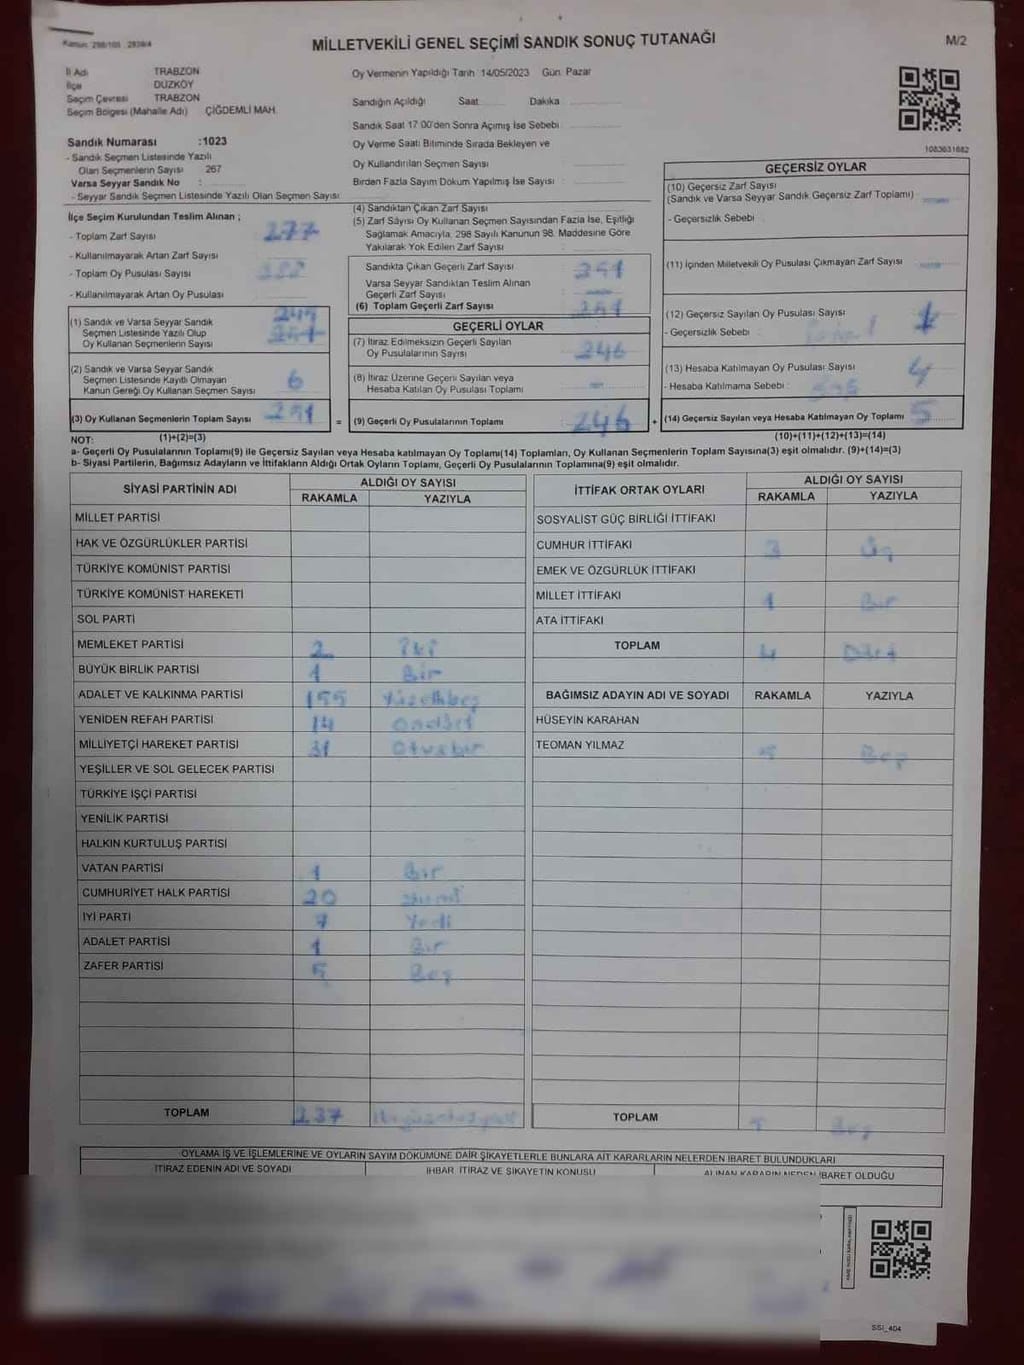 Kanun: 298/105 , 2839/4
MİLLETVEKİLİ GENEL SEÇİMİ SANDIK SONUÇ TUTANAĞI
M/2
İl Adı TRABZON
İlçe DÜZKÖY
Seçim Çevresi TRABZON
Seçim Bölgesi (Mahalle Adı) ÇİĞDEMLİ MAH.
Sandık Numarası :1023
- Sandık Seçmen Listesinde Yazılı
Olan Seçmenlerin Sayısı 267
Varsa Seyyar Sandık No :
- Seyyar Sandık Seçmen Listesinde Yazılı Olan Seçmen Sayısı
Oy Vermenin Yapıldığı Tarih :14/05/2023 Gün: Pazar
Sandığın Açıldığı Saat Dakika
Sandık Saat 17:00'den Sonra Açılmış İse Sebebi :
Oy Verme Saati Bitiminde Sırada Bekleyen ve
Oy Kullandırılan Seçmen Sayısı :
Birden Fazla Sayım Döküm Yapılmış İse Sayısı :
1083631682
İlçe Seçim Kurulundan Teslim Alınan ;
- Toplam Zarf Sayısı 277
- Kullanılmayarak Artan Zarf Sayısı
- Toplam Oy Pusulası Sayısı
- Kullanılmayarak Artan Oy Pusulası
(1) Sandık ve Varsa Seyyar Sandık 245
Seçmen Listesinde Yazılı Olup
Oy Kullanan Seçmenlerin Sayısı
(2) Sandık ve Varsa Seyyar Sandık
Seçmen Listesinde Kayıtlı Olmayan 6
Kanun Gereği Oy Kullanan Seçmen Sayısı
(3) Oy Kullanan Seçmenlerin Toplam Sayısı 251
(1)+(2)=(3)
(4) Sandıktan Çıkan Zarf Sayısı
(5) Zarf Sayısı Oy Kullanan Seçmen Sayısından Fazla İse, Eşitliği
Sağlamak Amacıyla, 298 Sayılı Kanunun 98. Maddesine Göre
Yakılarak Yok Edilen Zarf Sayısı :
Sandıkta Çıkan Geçerli Zarf Sayısı 251
Varsa Seyyar Sandıktan Teslim Alınan
Geçerli Zarf Sayısı :
(6) Toplam Geçerli Zarf Sayısı 251
GEÇERLİ OYLAR
(7) İtiraz Edilmeksizin Geçerli Sayılan
Oy Pusulalarının Sayısı 246
(8) İtiraz Üzerine Geçerli Sayılan veya
Hesaba Katılan Oy Pusulası Toplamı
= (9) Geçerli Oy Pusulalarının Toplamı 246 +
GEÇERSİZ OYLAR
(10) Geçersiz Zarf Sayısı
(Sandık ve Varsa Seyyar Sandık Geçersiz Zarf Toplamı)
- Geçersizlik Sebebi
(11) İçinden Milletvekili Oy Pusulası Çıkmayan Zarf Sayısı
(12) Geçersiz Sayılan Oy Pusulası Sayısı 1
- Geçersizlik Sebebi :
(13) Hesaba Katılmayan Oy Pusulası Sayısı 4
- Hesaba Katılmama Sebebi :
(14) Geçersiz Sayılan veya Hesaba Katılmayan Oy Toplamı 5
(10)+(11)+(12)+(13)=(14)
NOT:
a- Geçerli Oy Pusulalarının Toplamı(9) ile Geçersiz Sayılan veya Hesaba katılmayan Oy Toplamı(14) Toplamları, Oy Kullanan Seçmenlerin Toplam Sayısına(3) eşit olmalıdır. (9)+(14)=(3)
b- Siyasi Partilerin, Bağımsız Adayların ve İttifakların Aldığı Ortak Oyların Toplamı, Geçerli Oy Pusulalarının Toplamına(9) eşit olmalıdır.
SİYASİ PARTİNİN ADI ALDIĞI OY SAYISI
RAKAMLA YAZIYLA
MİLLET PARTİSİ
HAK VE ÖZGÜRLÜKLER PARTİSİ
TÜRKİYE KOMÜNİST PARTİSİ
TÜRKİYE KOMÜNİST HAREKETİ
SOL PARTİ
MEMLEKET PARTİSİ 2 İki
BÜYÜK BİRLİK PARTİSİ 1 Bir
ADALET VE KALKINMA PARTİSİ 155 Yüzellibeş
YENİDEN REFAH PARTİSİ 14 Ondört
MİLLİYETÇİ HAREKET PARTİSİ 31 Otuzbir
YEŞİLLER VE SOL GELECEK PARTİSİ
TÜRKİYE İŞÇİ PARTİSİ
YENİLİK PARTİSİ
HALKIN KURTULUŞ PARTİSİ
VATAN PARTİSİ 1 Bir
CUMHURİYET HALK PARTİSİ 20 Yirmi
İYİ PARTİ 7 Yedi
ADALET PARTİSİ 1 Bir
ZAFER PARTİSİ 5 Beş
TOPLAM 237
İTTİFAK ORTAK OYLARI ALDIĞI OY SAYISI
RAKAMLA YAZIYLA
SOSYALİST GÜÇ BİRLİĞİ İTTİFAKI
CUMHUR İTTİFAKI 3 Üç
EMEK VE ÖZGÜRLÜK İTTİFAKI
MİLLET İTTİFAKI 1 Bir
ATA İTTİFAKI
TOPLAM 4 Dört
BAĞIMSIZ ADAYIN ADI VE SOYADI RAKAMLA YAZIYLA
HÜSEYİN KARAHAN
TEOMAN YILMAZ 5 Beş
TOPLAM 5 Beş
OYLAMA İŞ VE İŞLEMLERİNE VE OYLARIN SAYIM DÖKÜMÜNE DAİR ŞİKAYETLERLE BUNLARA AİT KARARLARIN NELERDEN İBARET BULUNDUKLARI
İTİRAZ EDENİN ADI VE SOYADI İHBAR, İTİRAZ VE ŞİKAYETİN KONUSU ALINAN KARARIN NEDEN İBARET OLDUĞU
SSI_404